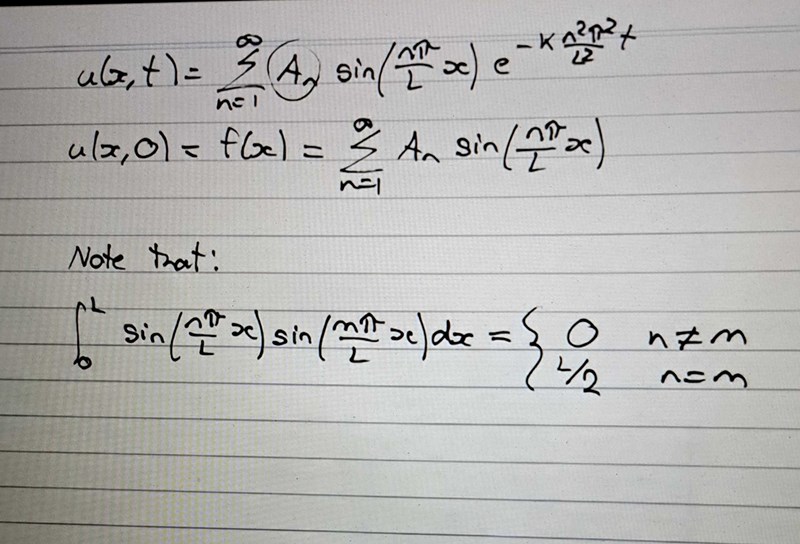 u(x,t) = ∑_{n=1}^{∞} A_n sin(nπ/L x) e^{-K n²π²/L² t}
u(x,0) = f(x) = ∑_{n=1}^{∞} A_n sin(nπ/L x)
Note that:
∫_0^L sin(nπ/L x) sin(mπ/L x) dx = { 0 n≠m
L/2 n=m